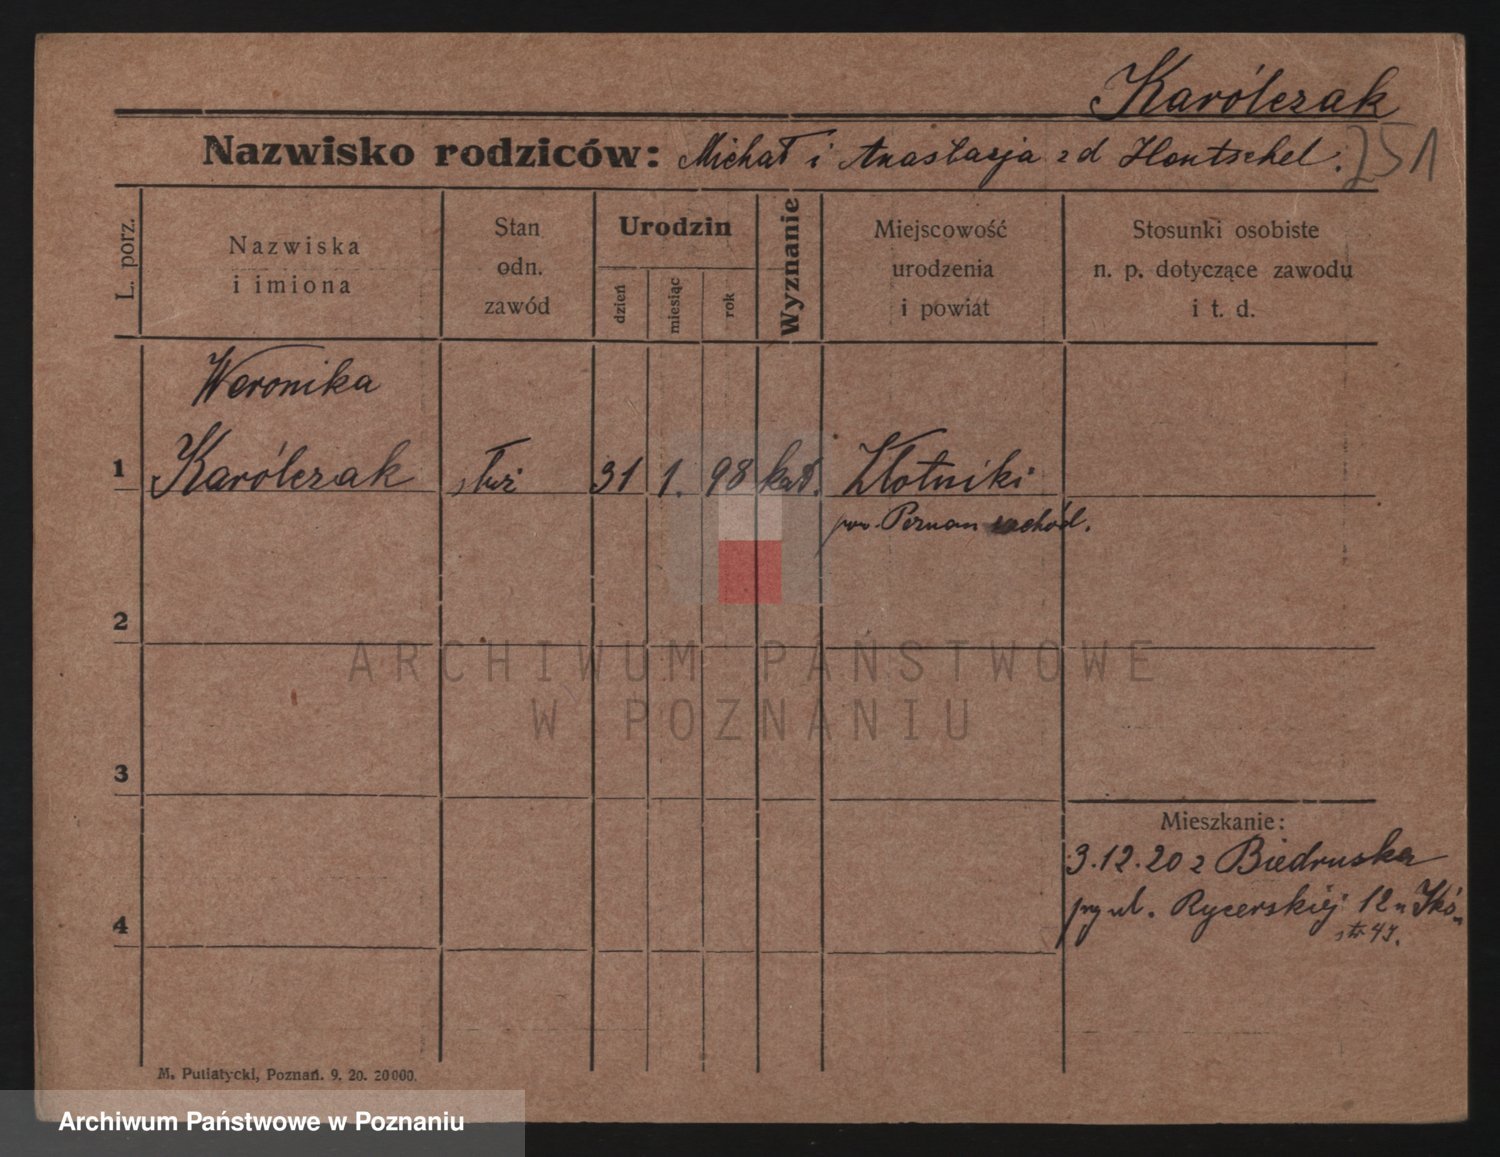 Karólczak
Nazwisko rodziców: Michał i Anastazja zd Hentschel.
251
L. porz.
Nazwiska
i imiona
Stan
odn.
zawód
Urodzin
dzień
miesiąc
rok
Wyznanie
Miejscowość
urodzenia
i powiat
Stosunki osobiste
n. p. dotyczące zawodu
i t. d.
Weronika
1 Karólczak służ 31 1. 98 kat. Złotniki
pow. Poznań zachód.
2
ARCHIWUM PAŃSTWOWE
W POZNANIU
3
Mieszkanie:
3.12.20 z Biedruska
przy ul. Rycerskiej 12
4
M. Putiatycki, Poznań. 9. 20. 20000.
Archiwum Państwowe w Poznaniu